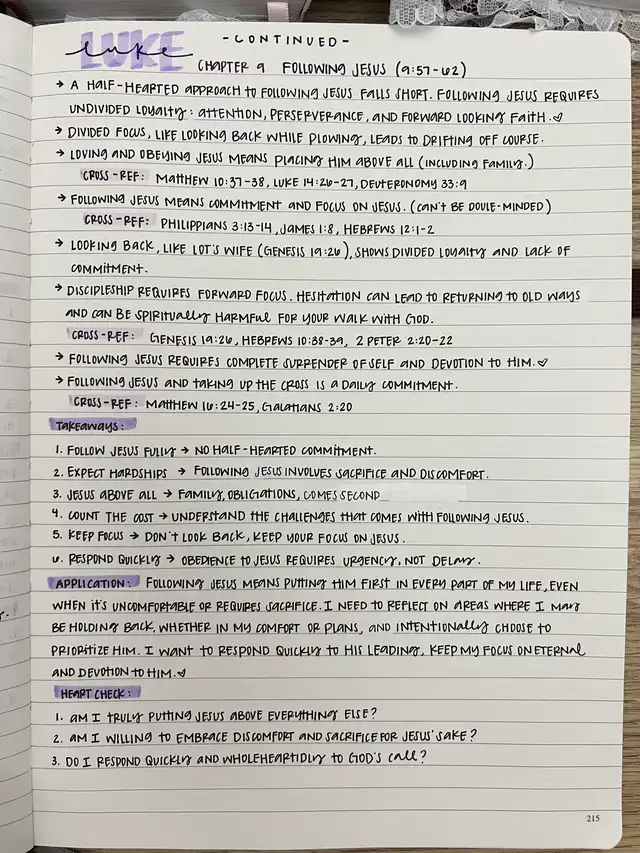 - CONTINUED -
LUKE
luke
CHAPTER 9 FOLLOWING JESUS (9:57-62)
→ A HALF-HEARTED APPROACH TO FOLLOWING JESUS FALLS SHORT. FOLLOWING JESUS REQUIRES
UNDIVIDED LOYALTY: ATTENTION, PERSERVERANCE, AND FORWARD LOOKING FAITH.♡
→ DIVIDED FOCUS, LIKE LOOKING BACK WHILE PLOWING, LEADS TO DRIFTING OFF COURSE.
→ LOVING AND OBEYING JESUS MEANS PLACING HIM ABOVE ALL (INCLUDING FAMILY.)
CROSS-REF: MATTHEW 10:37-38, LUKE 14:26-27, DEUTERONOMY 33:9
→ FOLLOWING JESUS MEANS COMMITMENT AND FOCUS ON JESUS. (CAN'T BE DOULE-MINDED)
CROSS-REF: PHILIPPIANS 3:13-14, JAMES 1:8, HEBREWS 12:1-2
→ LOOKING BACK, LIKE LOT'S WIFE (GENESIS 19:26), SHOWS DIVIDED LOYALTY AND LACK OF
COMMITMENT.
→ DISCIPLESHIP REQUIRES FORWARD FOCUS. HESITATION CAN LEAD TO RETURNING TO OLD WAYS
AND CAN BE SPIRITUALLY HARMFUL FOR YOUR WALK WITH GOD.
CROSS-REF: GENESIS 19:26, HEBREWS 10:38-39, 2 PETER 2:20-22
→ FOLLOWING JESUS REQUIRES COMPLETE SURRENDER OF SELF AND DEVOTION TO HIM.♡
→ FOLLOWING JESUS AND TAKING UP THE CROSS IS A DAILY COMMITMENT.
CROSS-REF: MATTHEW 16:24-25, GALATIANS 2:20
TAKEAWAYS:
1. FOLLOW JESUS FULLY → NO HALF-HEARTED COMMITMENT.
2. EXPECT HARDSHIPS → FOLLOWING JESUS INVOLVES SACRIFICE AND DISCOMFORT.
3. JESUS ABOVE ALL → FAMILY, OBLIGATIONS, COMES SECOND
4. COUNT THE COST → UNDERSTAND THE CHALLENGES THAT COMES WITH FOLLOWING JESUS.
5. KEEP FOCUS → DON'T LOOK BACK, KEEP YOUR FOCUS ON JESUS.
6. RESPOND QUICKLY → OBEDIENCE TO JESUS REQUIRES URGENCY, NOT DELAY.
APPLICATION: FOLLOWING JESUS MEANS PUTTING HIM FIRST IN EVERY PART OF MY LIFE, EVEN
WHEN IT'S UNCOMFORTABLE OR REQUIRES SACRIFICE. I NEED TO REFLECT ON AREAS WHERE I MAY
BE HOLDING BACK, WHETHER IN MY COMFORT OR PLANS, AND INTENTIONALLY CHOOSE TO
PRIORITIZE HIM. I WANT TO RESPOND QUICKLY TO HIS LEADING, KEEP MY FOCUS ON ETERNAL
AND DEVOTION TO HIM.♡
HEART CHECK:
1. AM I TRULY PUTTING JESUS ABOVE EVERYTHING ELSE?
2. AM I WILLING TO EMBRACE DISCOMFORT AND SACRIFICE FOR JESUS' SAKE?
3. DO I RESPOND QUICKLY AND WHOLEHEARTIDLY TO GOD'S CALL?
215